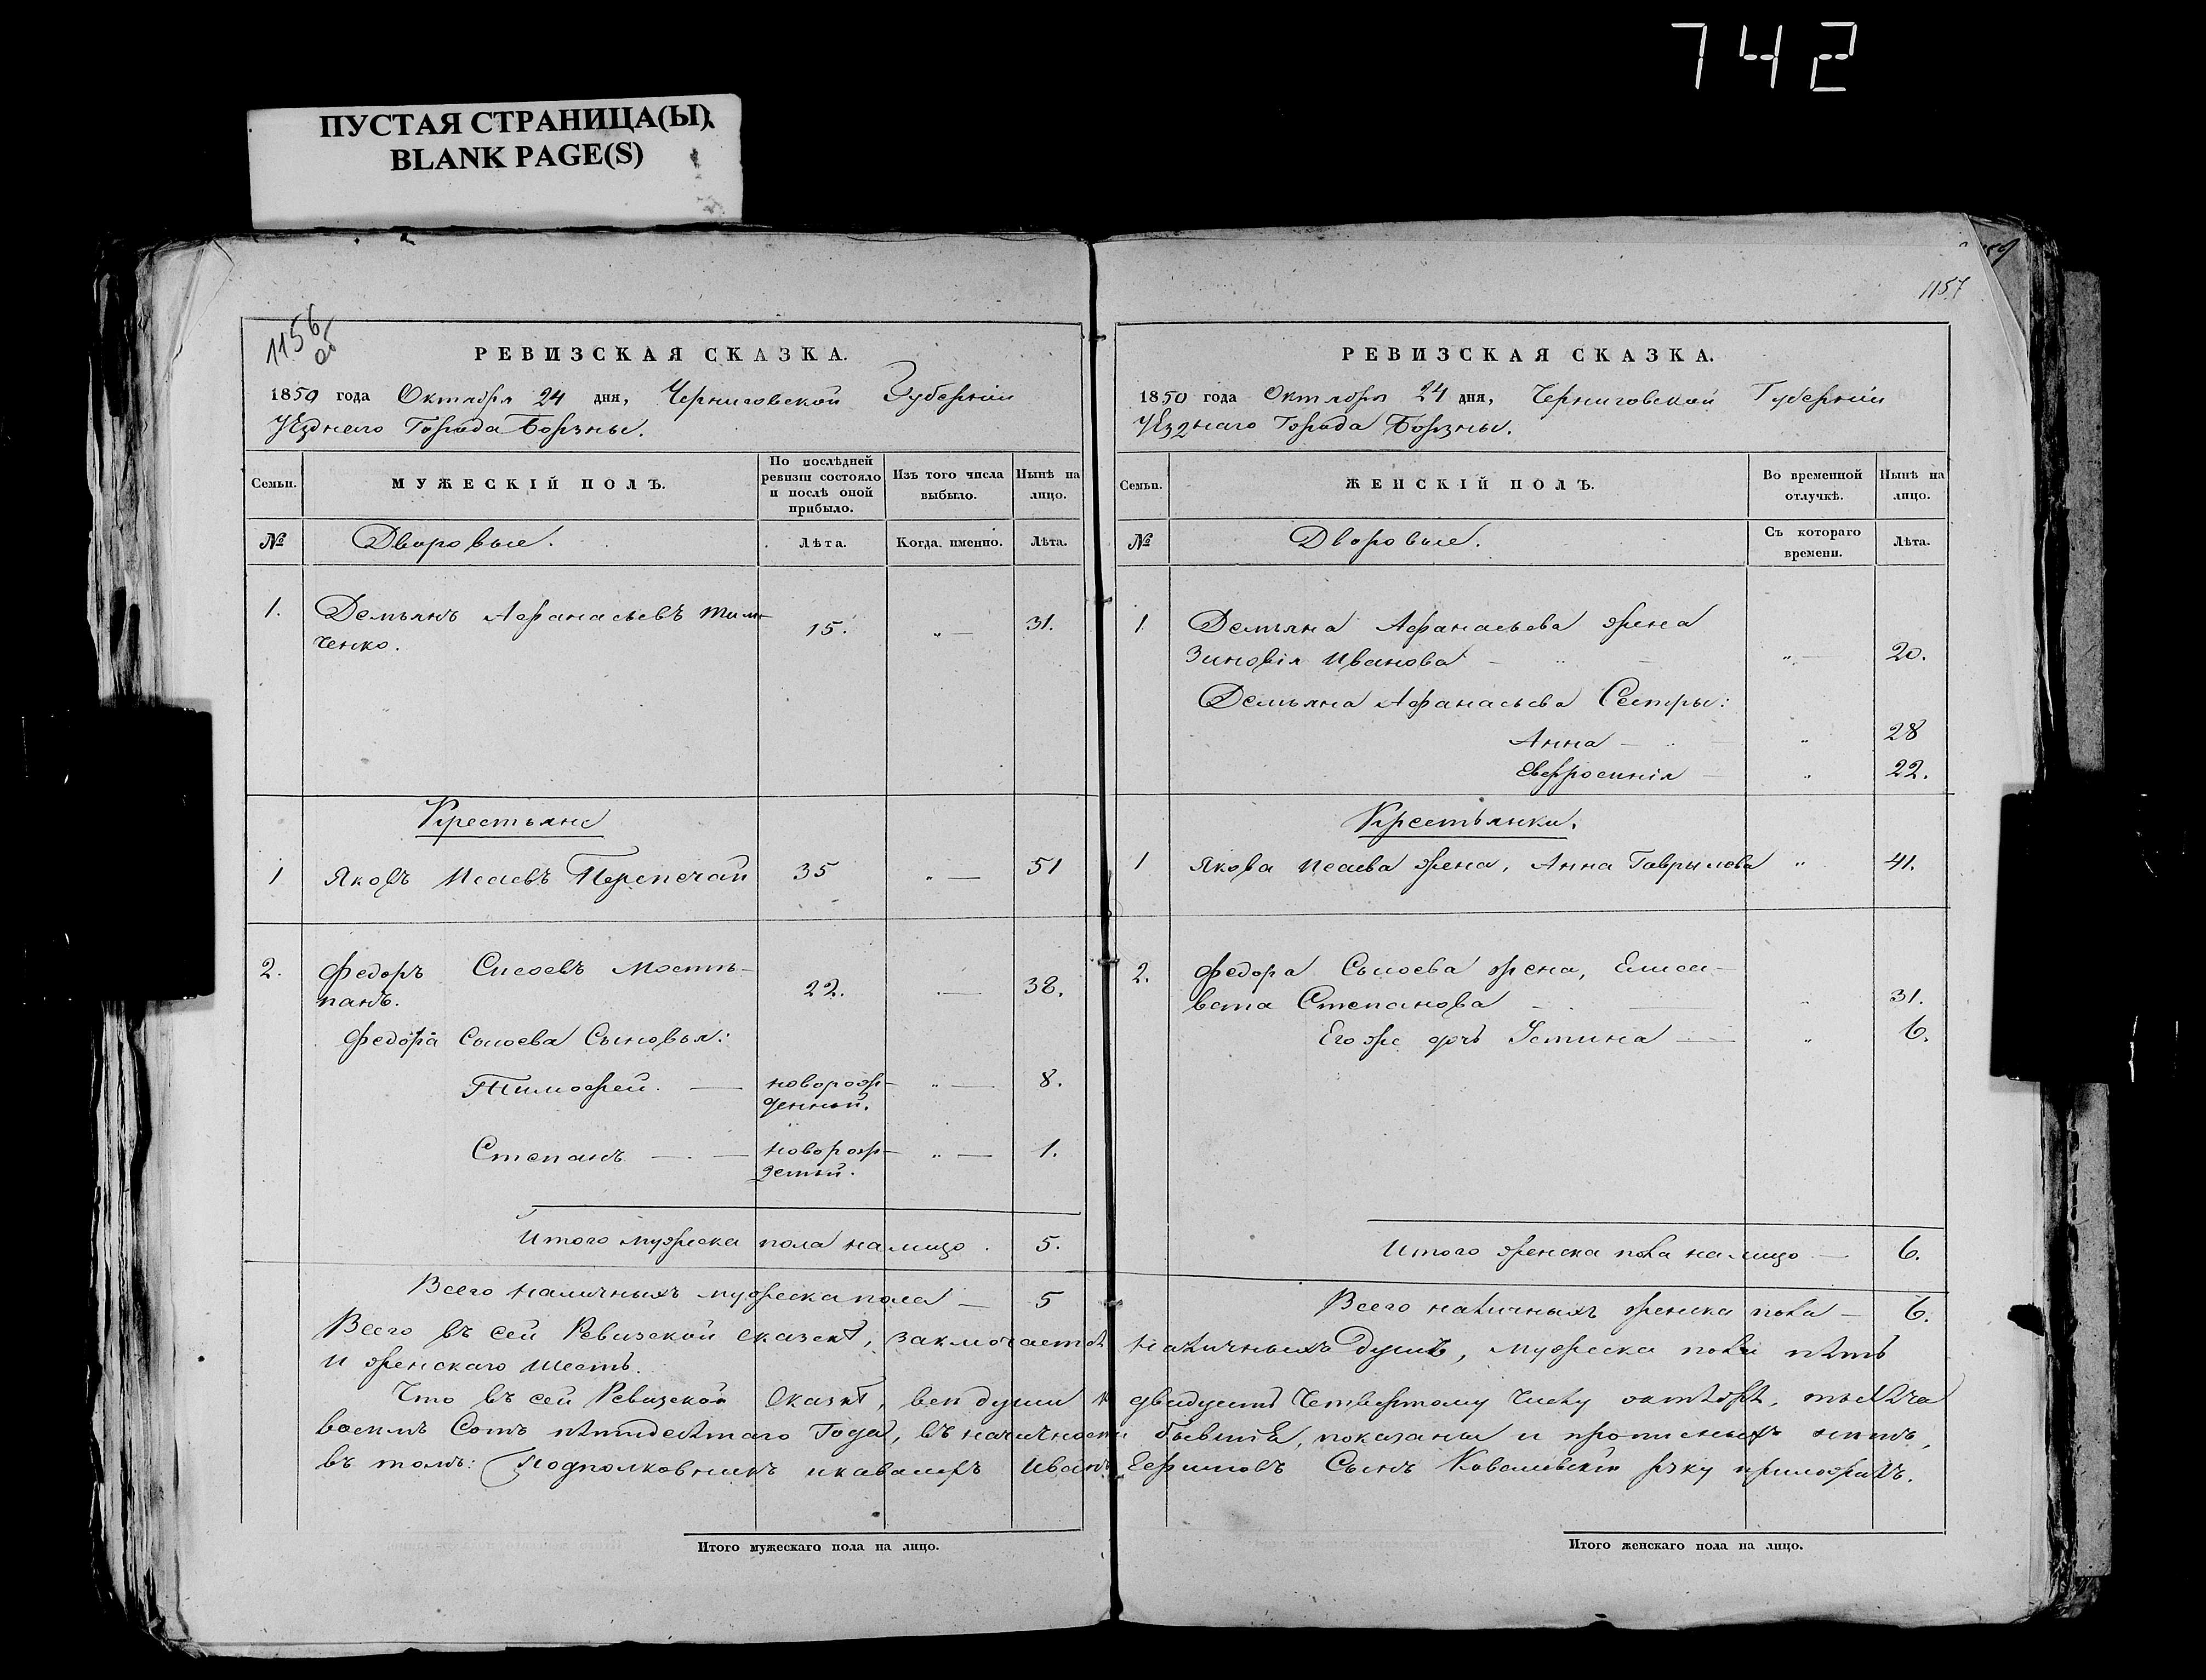 742
ПУСТАЯ СТРАНИЦА(Ы)
BLANK PAGE(S)
1156
об
РЕВИЗСКАЯ СКАЗКА.
1850 года Октября 24 дня, Черниговской Губерніи
Уѣзднаго Города Борзны.
Семьи.
МУЖЕСКІЙ ПОЛЪ.
По послѣдней ревизіи состояло и послѣ оной прибыло.
Изъ того числа выбыло.
Нынѣ на лицо.
№
Дворовые.
Лѣта.
Когда именно.
Лѣта.
1. Демьянъ Афанасьевъ Тим- 15. „ — 31.
ченко.
Крестьяне
1 Яковъ Исаевъ Перепечай 35 „ — 51
2. Федоръ Сисоевъ Мость- 22. „ — 38.
панъ.
Федора Сысоева Сыновья:
Тимофей. — новорож- „ — 8.
денный.
Степанъ — новорож- „ — 1.
денный.
Итого мужеска пола на лицо. 5.
Всего наличныхъ мужеска пола — 5
1157
РЕВИЗСКАЯ СКАЗКА.
1850 года Октября 24 дня, Черниговской Губерніи
Уѣзднаго Города Борзны.
Семьи.
ЖЕНСКІЙ ПОЛЪ.
Во временной отлучкѣ.
Нынѣ на лицо.
№
Дворовые.
Съ котораго времени.
Лѣта.
1 Демьяна Афанасьева жена
Зиновія Иванова — „ — 20.
Демьяна Афанасьева Сестры:
Анна — „ 28
Евфросинія — „ 22.
Крестьянки.
1 Якова Исаева жена, Анна Гаврылова „ 41.
2. Федора Сысоева жена, Елиса-
вета Степанова — „ 31.
Его же дочь Устина — „ 6.
Итого женска пола на лицо — 6.
Всего наличныхъ женска пола — 6.
Всего въ сей Ревизской сказкѣ, заключается наличныхъ Душъ, мужеска пола пять
и женскаго шесть.
Что въ сей Ревизской Сказкѣ, всѣ души к двадцать Четвертому Числу октября, тысяча
восемь Сотъ пятидесятаго Года, въ наличности бывшiя, показаны и прописныхъ нѣтъ,
въ томъ: Подполковникъ и кавалеръ Иванъ Ефимовъ Сынъ Ковалевскій руку приложилъ.
Итого мужескаго пола на лицо.
Итого женскаго пола на лицо.